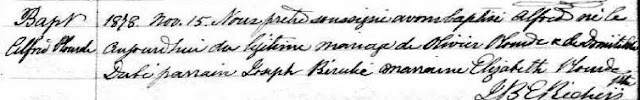 Bapt
Alfred Plourde
1878. Nov. 15. Nous prêtre soussigné avons baptisé Alfred né le
aujourd'hui du légitime mariage de Olivier Plourde & de Domitilde
Dubé parrain Joseph Bérubé marraine Elizabeth Plourde
J.B.E.